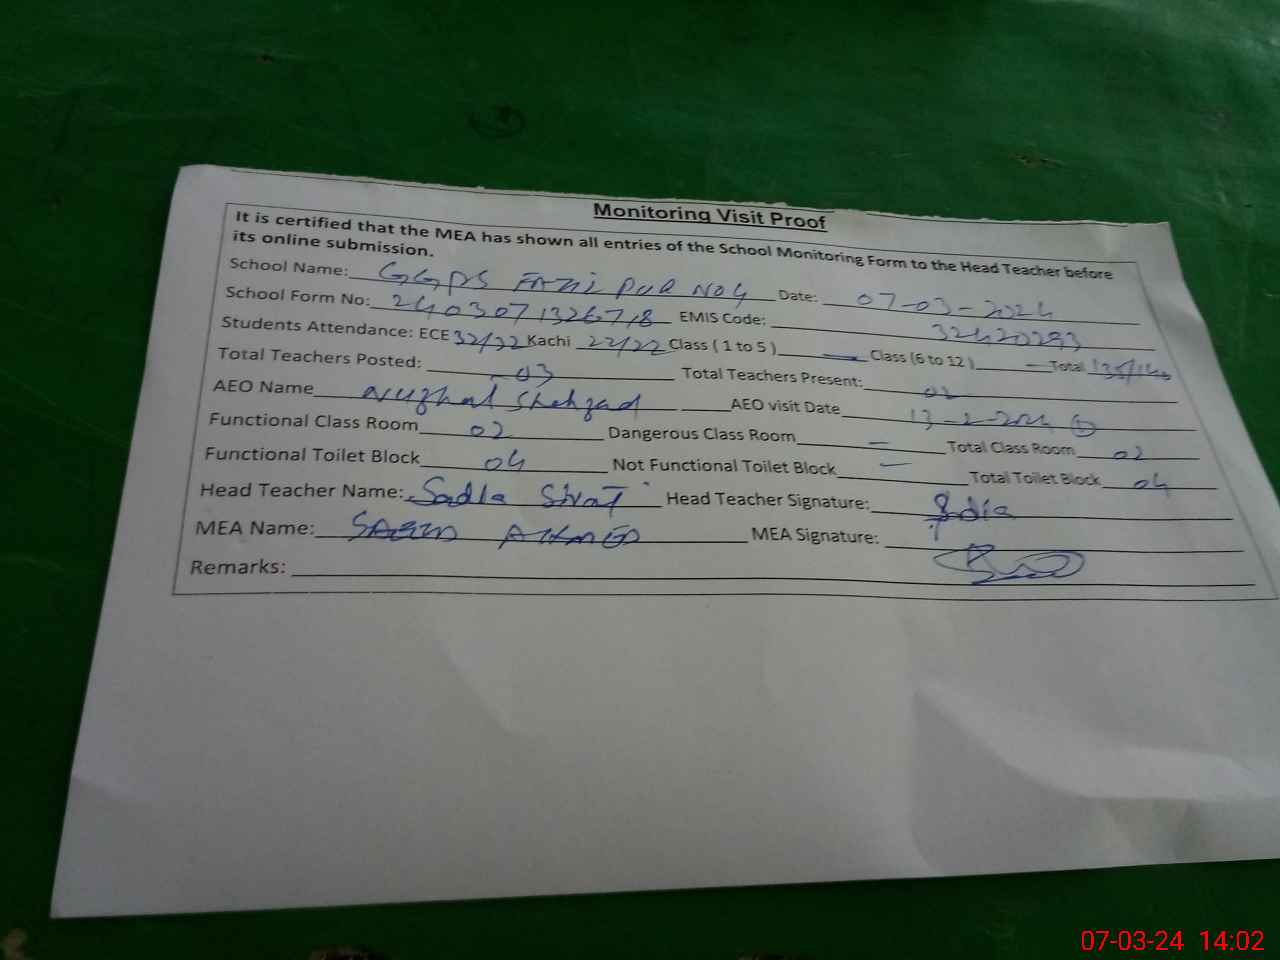 Monitoring Visit Proof
It is certified that the MEA has shown all entries of the School Monitoring Form to the Head Teacher before
its online submission.
School Name: GGPS Fazil Pur No 4 Date: 07-03-2024
School Form No: 2403071326718 EMIS Code: 32420293
Students Attendance: ECE 32/32 Kachi 22/22 Class ( 1 to 5 ) — Class (6 to 12 ) — Total 135/140
Total Teachers Posted: 03 Total Teachers Present: 02
AEO Name Nuzhat Shehzad AEO visit Date 13-2-2024
Functional Class Room 02 Dangerous Class Room — Total Class Room 02
Functional Toilet Block 04 Not Functional Toilet Block — Total Toilet Block 04
Head Teacher Name: Sadia Head Teacher Signature: Sadia
MEA Name: Ahmed MEA Signature:
Remarks:
07-03-24 14:02